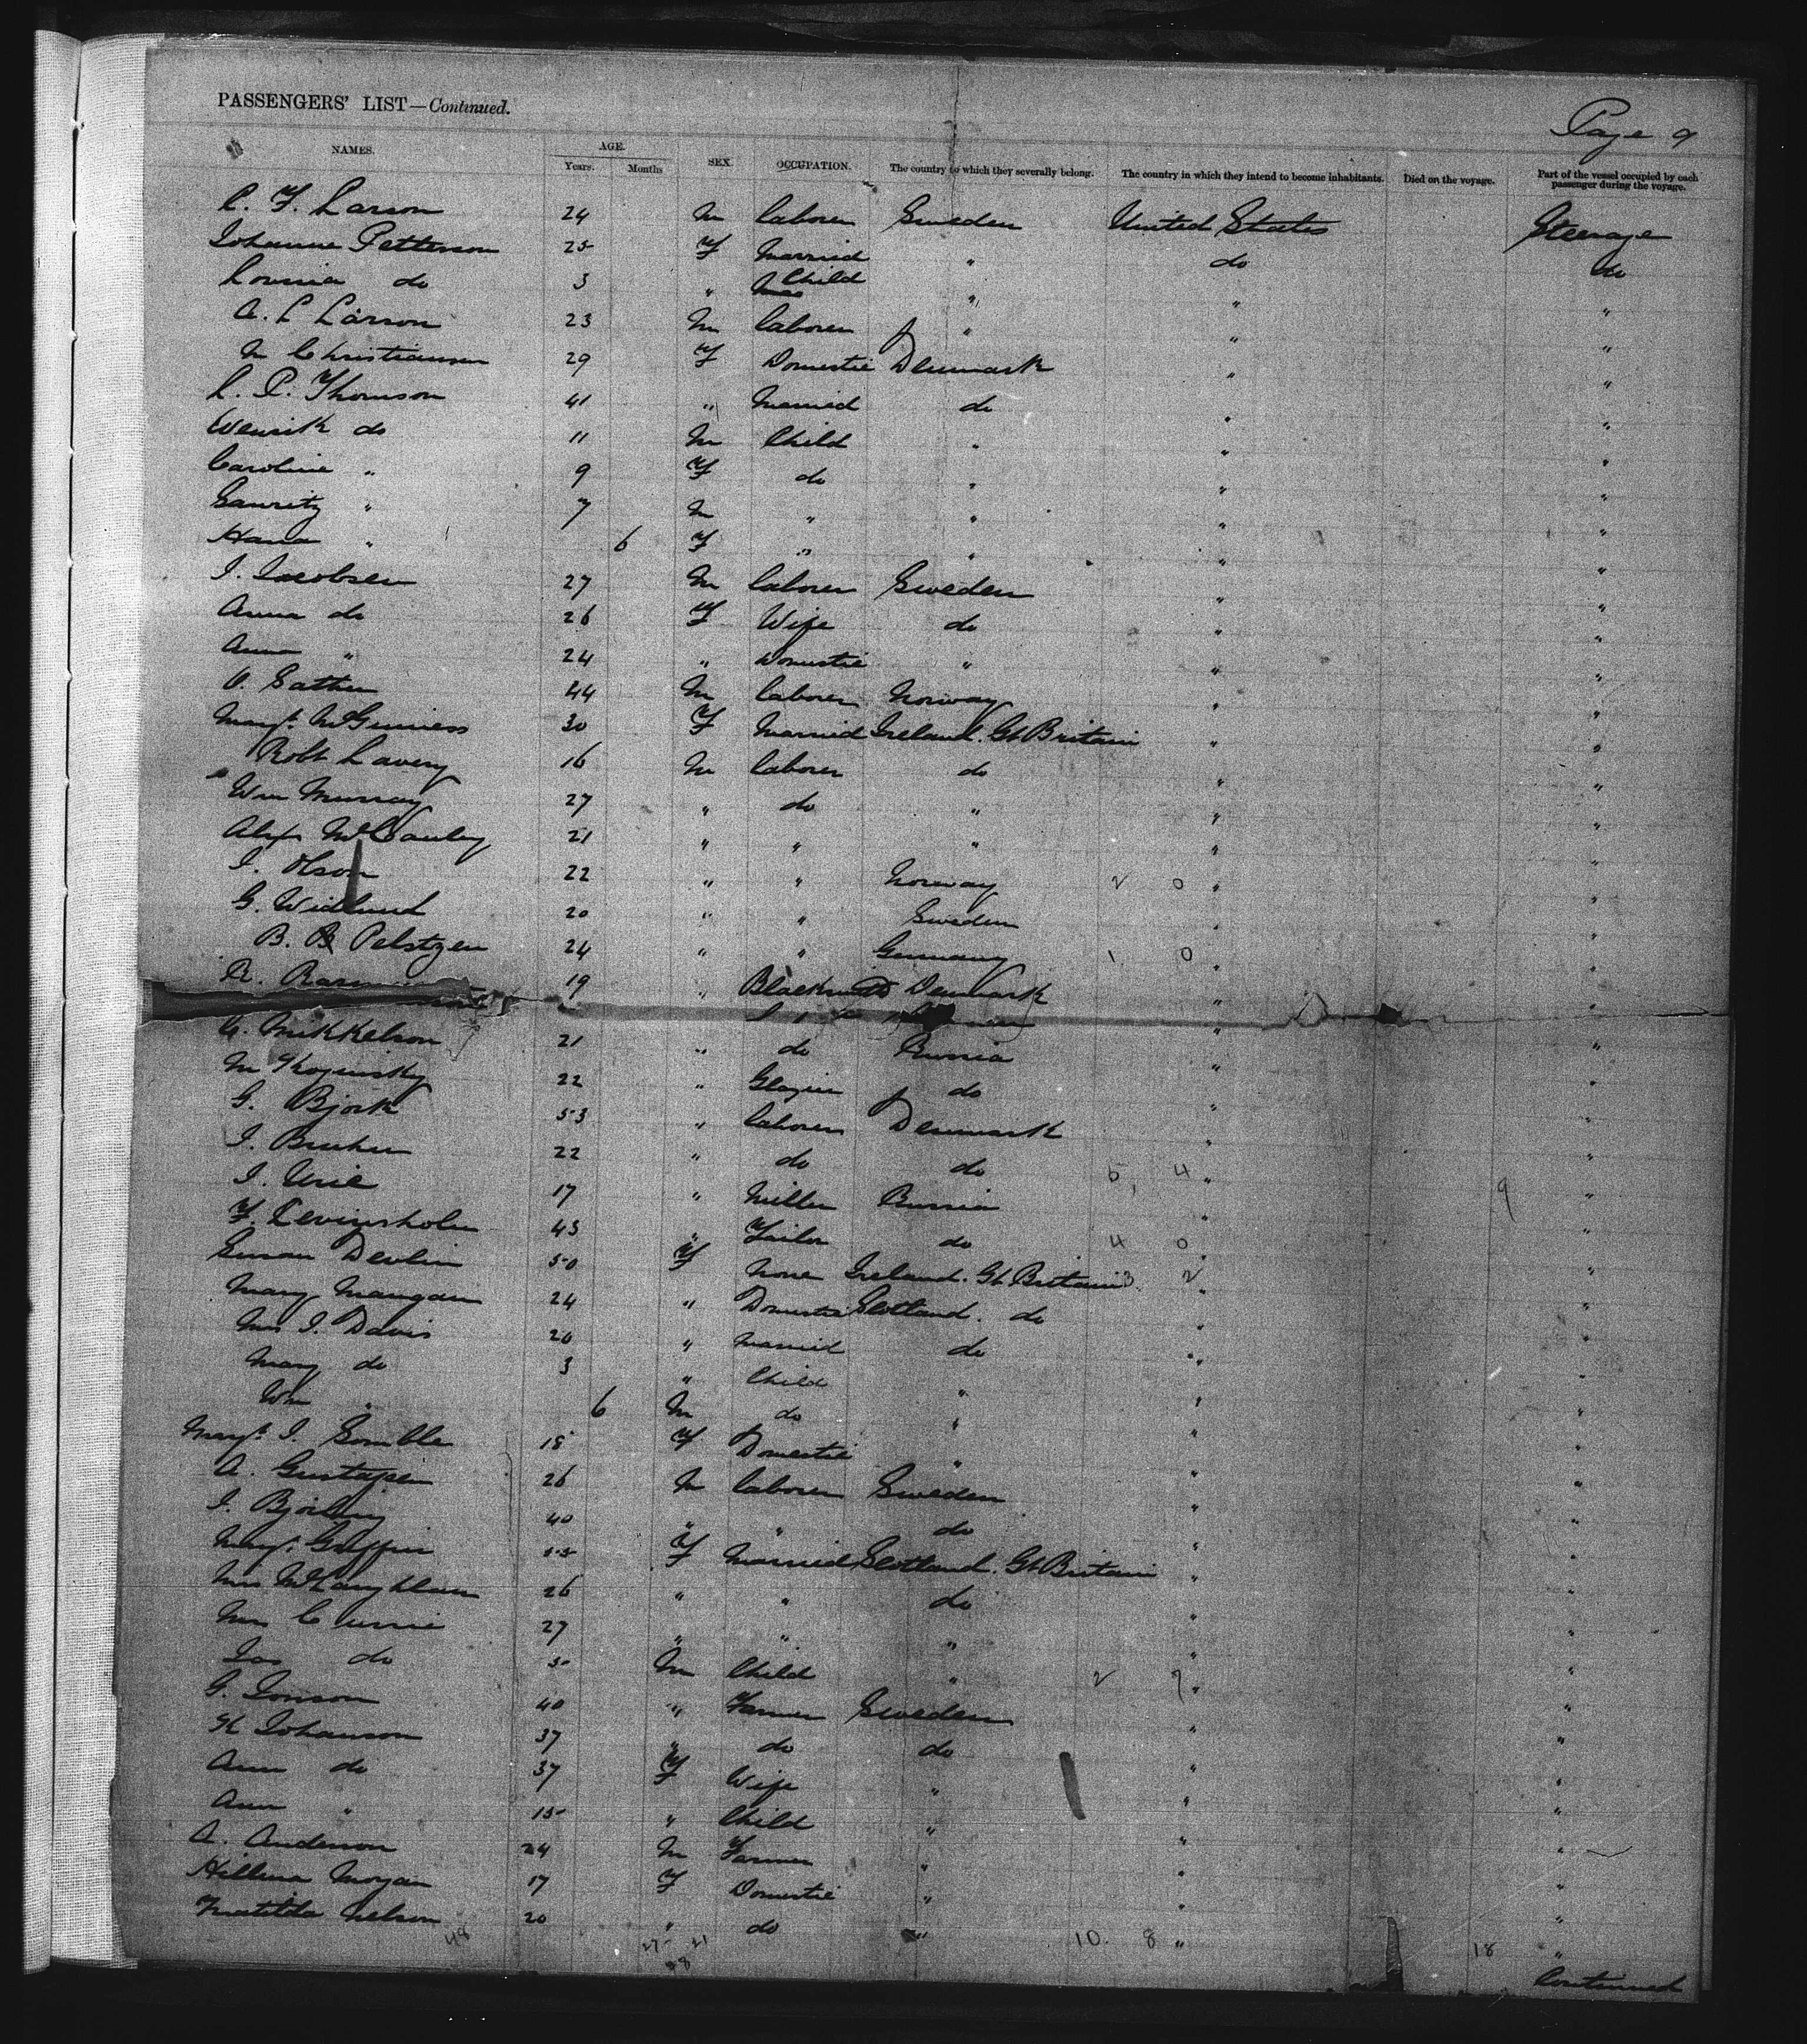 PASSENGERS' LIST—Continued.
Page 9
NAMES. AGE. Years. Months SEX. OCCUPATION. The country to which they severally belong. The country in which they intend to become inhabitants. Died on the voyage. Part of the vessel occupied by each passenger during the voyage.
C. F. Larson 24 M Laborer Sweden United States Steerage
Johanne Petterson 25 F Married " do do
Lovisia do 3 " Child " " "
A. L Larson 23 M Laborer " " "
M Christiansen 29 F Domestic Denmark " "
L. P. Thomson 41 " Married do " "
do 11 M Child " " "
Caroline " 9 F do " " "
Lauritz " 7 M " " " "
Hana " 6 F " " " "
J. Jacobsen 27 M Laborer Sweden " "
Anna do 26 F Wife do " "
Anna " 24 " Domestic " " "
O. Sather 44 M Laborer Norway " "
Margt. McGuiness 30 F Married Ireland. Gt Britain " "
Robt Lavery 16 M Laborer do " "
Wm Murray 27 " do " " "
Alexr McCauley 21 " " " " "
J. Olson 22 " " Norway 2 0 " "
G. Widlund 20 " " Sweden " "
B. Pelstzen 24 " " Germany 1 0 " "
R. 19 " Blacksmith Denmark " "
C. Mikkelson 21 " do Russia " "
M 22 " Glazier do " "
G. Bjork 53 " Laborer Denmark " "
J. 22 " do do 5, 4 " "
J. Urie 17 " Miller Russia " 9 "
F. Levinsholm 43 " Tailor do 4 0 " "
Susan Devlin 50 F None Ireland. Gt Britain 3. 2 " "
Mary Mangan 24 " Domestic Scotland. do " "
Mrs J. Davis 20 " Married do " "
Mary do 3 " Child " " "
Wm " 6 M do " " "
Margt. J. 18 F Domestic " " "
A. 26 M Laborer Sweden " "
J. 40 " " do " "
Margt. Griffin 55 F Married Scotland. Gt Britain " "
Mrs McLaughlan 26 " " do " "
Mrs Currie 27 " " " " "
Jas do 5 M Child " 2 7 " "
G. Jonson 40 " Farmer Sweden " "
K Johanson 37 " do do " "
Ann do 37 F Wife " " "
Ann " 15 " Child " " "
A. Anderson 24 M Farmer " " "
Hillena Morgan 17 F Domestic " " "
Matilda Nelson 20 " do " 10. 8 " 18 "
48 27 - 21
Continued